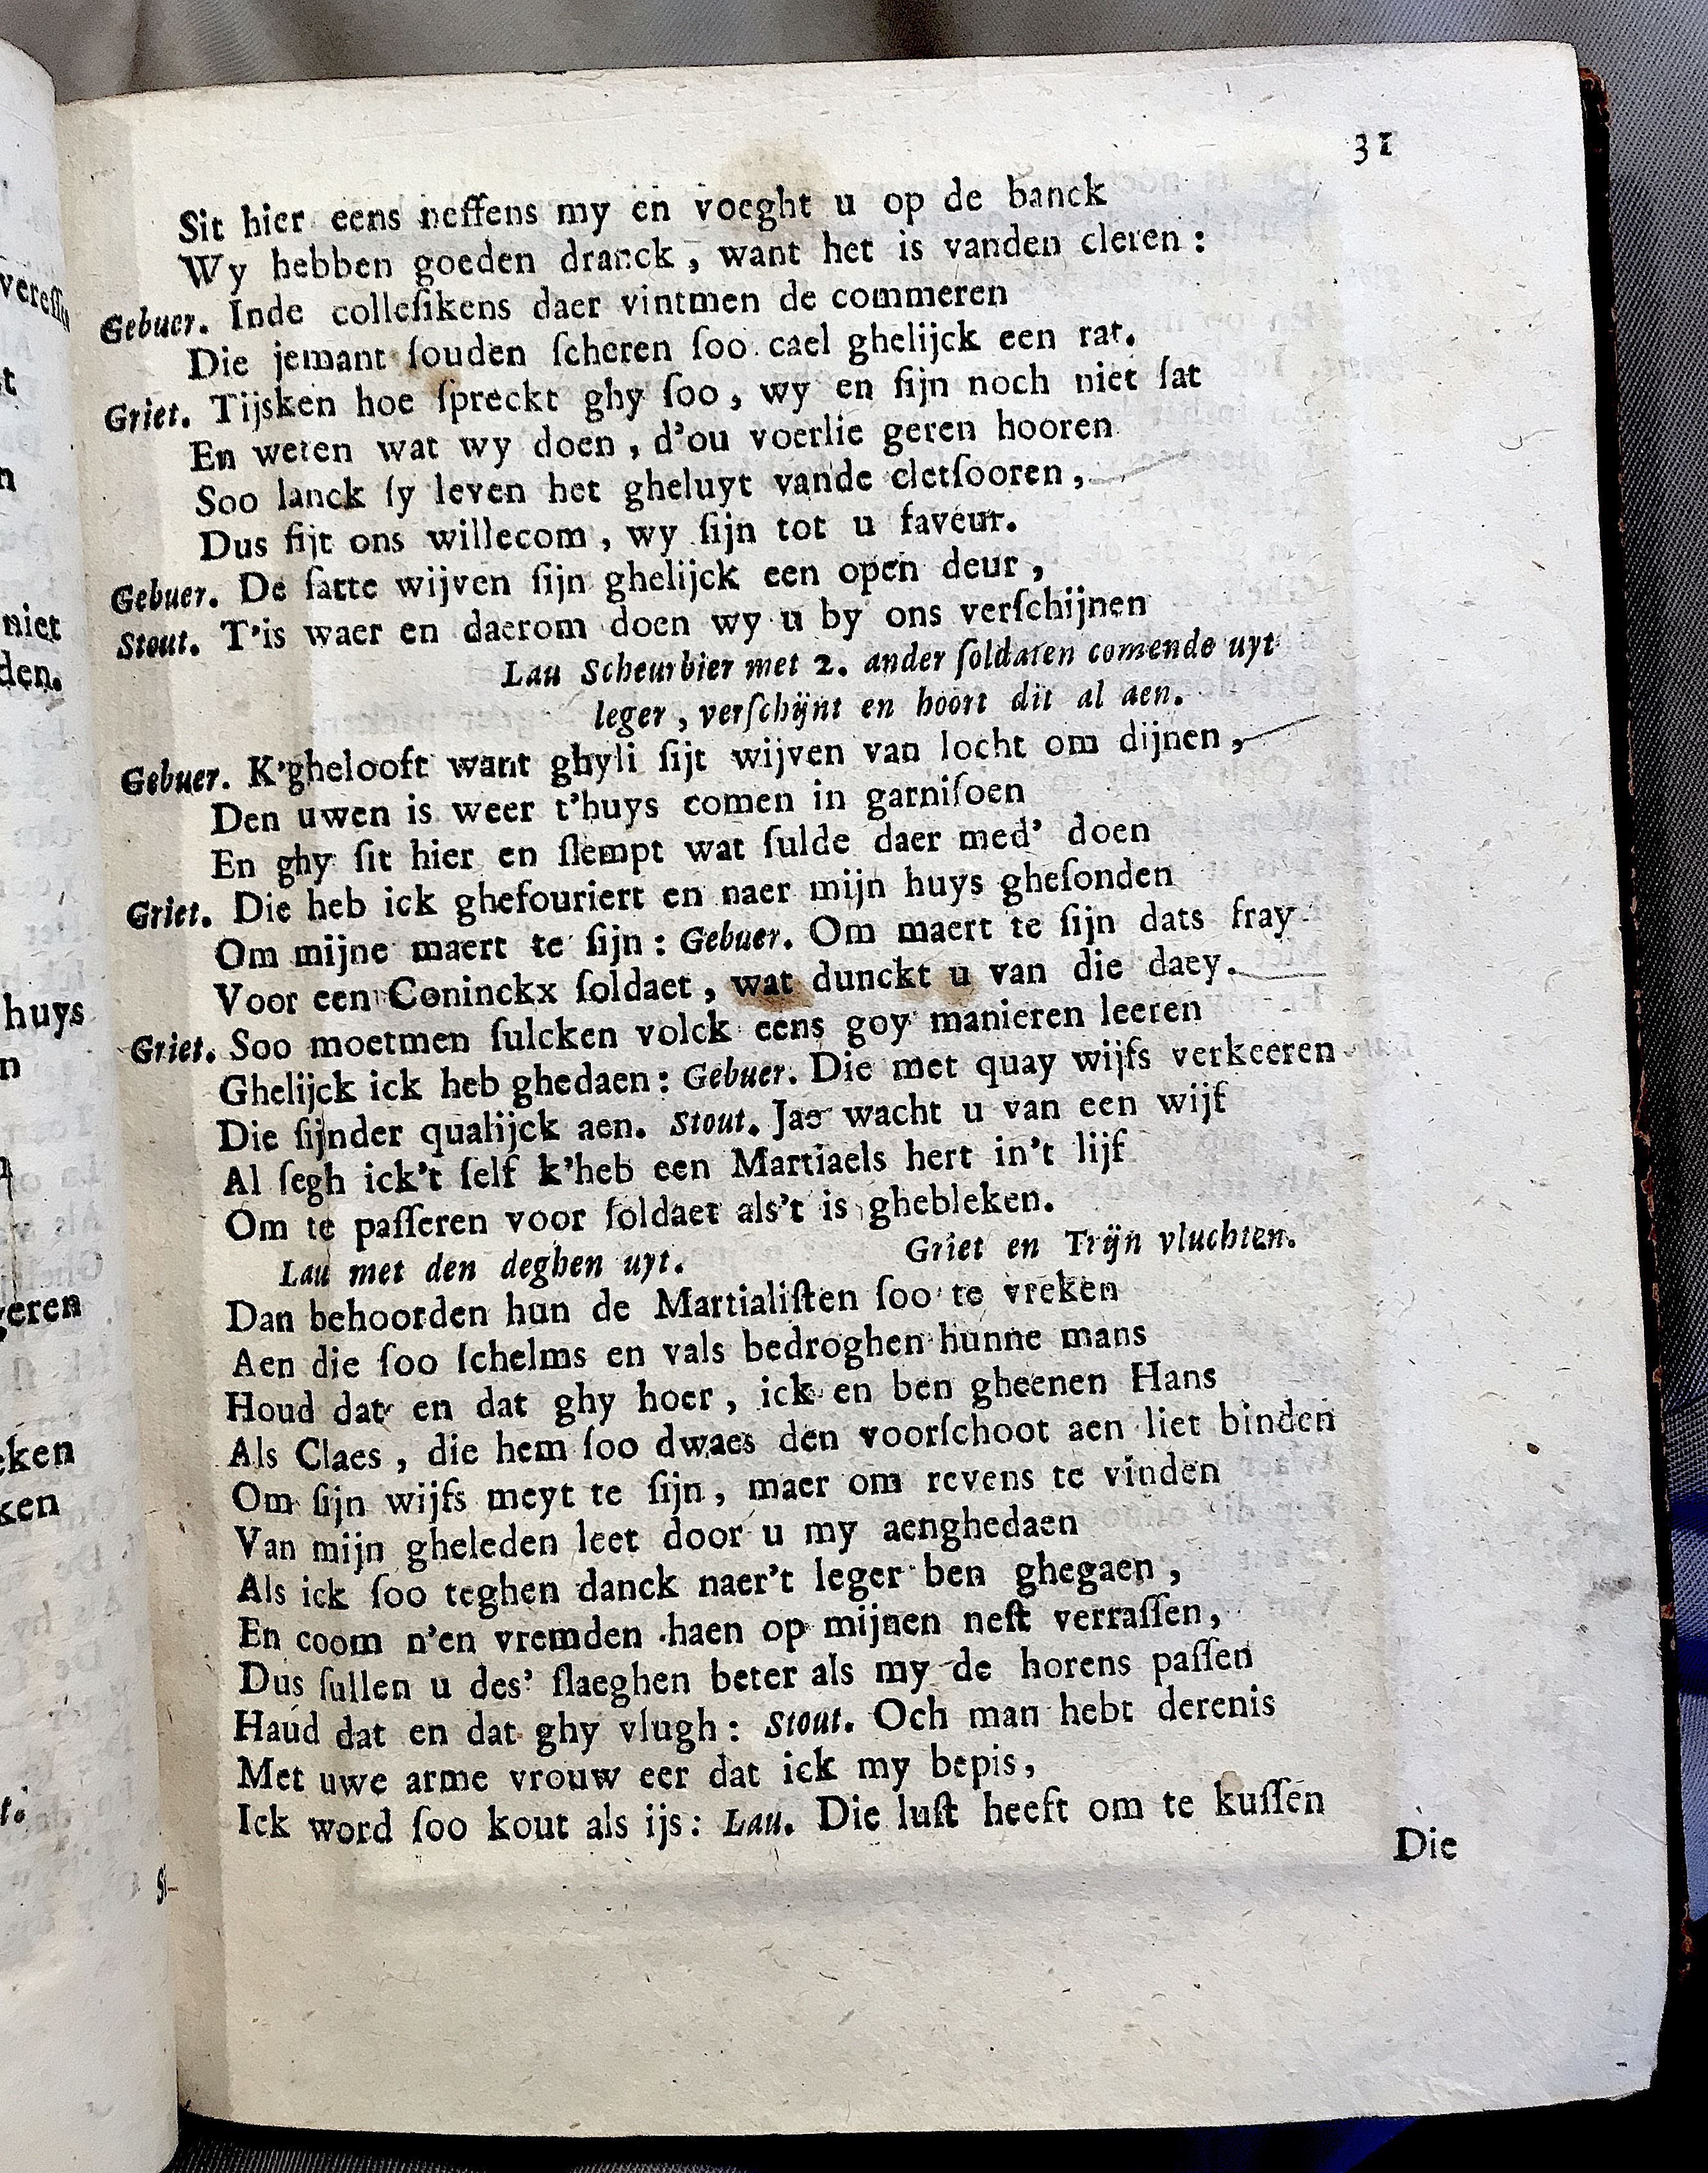 31
Sit hier eens neffens my en voeght u op de banck
Wy hebben goeden dranck, want het is vanden cleren:
Gebuer. Inde colleſikens daer vintmen de commeren
Die jemant ſouden ſcheren ſoo cael ghelijck een rat.
Griet. Tijsken hoe ſpreckt ghy ſoo, wy en ſijn noch niet ſat
En weten wat wy doen, d'ou voerlie geren hooren
Soo lanck ſy leven het gheluyt vande cletſooren,
Dus ſijt ons willecom, wy ſijn tot u faveur.
Gebuer. De ſatte wijven ſijn ghelijck een open deur,
Stout. T'is waer en daerom doen wy u by ons verſchijnen
Lau Scheurbier met 2. ander ſoldaten comende uyt
leger, verſchijnt en hoort dit al aen.
Gebuer. K'ghelooft want ghyli ſijt wijven van locht om dijnen,
Den uwen is weer t'huys comen in garniſoen
En ghy ſit hier en ſlempt wat ſulde daer med' doen
Griet. Die heb ick ghefouriert en naer mijn huys gheſonden
Om mijne maert te ſijn: Gebuer. Om maert te ſijn dats fray
Voor een Coninckx ſoldaet, wat dunckt u van die daey.
Griet. Soo moetmen ſulcken volck eens goy manieren leeren
Ghelijck ick heb ghedaen: Gebuer. Die met quay wijfs verkeeren
Die ſijnder qualijck aen. Stout. Jae wacht u van een wijf
Al ſegh ick't ſelf k'heb een Martiaels hert in't lijf
Om te paſſeren voor ſoldaet als't is ghebleken.
Lau met den deghen uyt. Griet en Trijn vluchten.
Dan behoorden hun de Martialiſten ſoo te vreken
Aen die ſoo ſchelms en vals bedroghen hunne mans
Houd dat en dat ghy hoer, ick en ben gheenen Hans
Als Claes, die hem ſoo dwaes den voorſchoot aen liet binden
Om ſijn wijfs meyt te ſijn, maer om revens te vinden
Van mijn gheleden leet door u my aenghedaen
Als ick ſoo teghen danck naer't leger ben ghegaen,
En coom n'en vremden haen op mijnen neſt verraſſen,
Dus ſullen u des' ſlaeghen beter als my de horens paſſen
Haud dat en dat ghy vlugh: Stout. Och man hebt derenis
Met uwe arme vrouw eer dat ick my bepis,
Ick word ſoo kout als ijs: Lau. Die luſt heeft om te kuſſen
Die